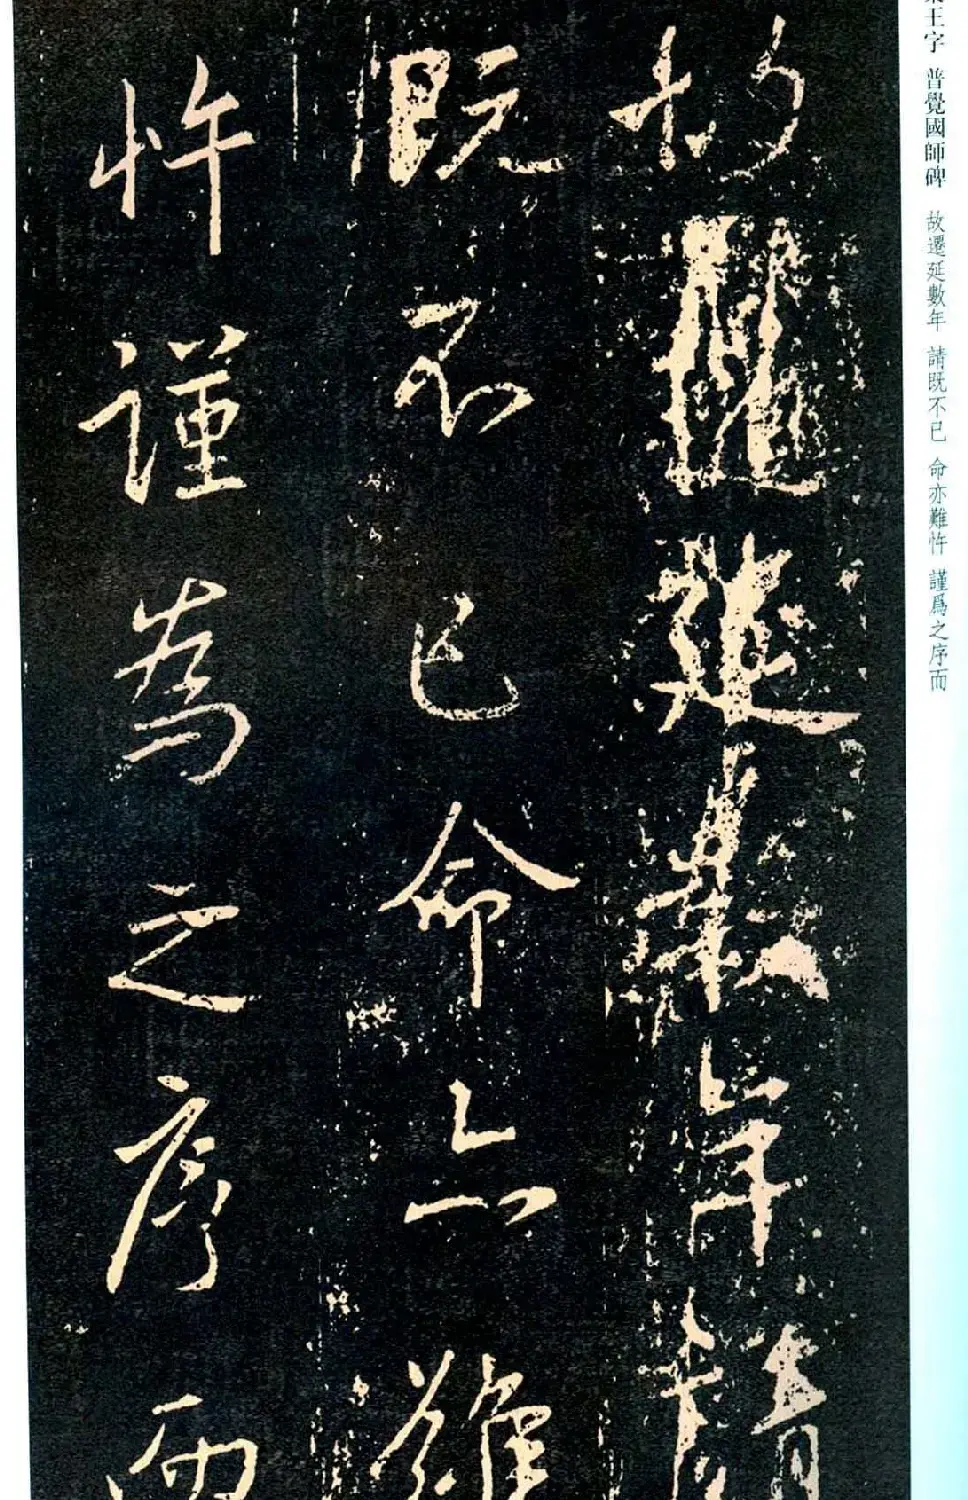 故遷延數年請
既不已命亦難
忤謹為之序而
集王字 普覺國師碑 故遷延數年 請既不已 命亦難忤 謹爲之序而